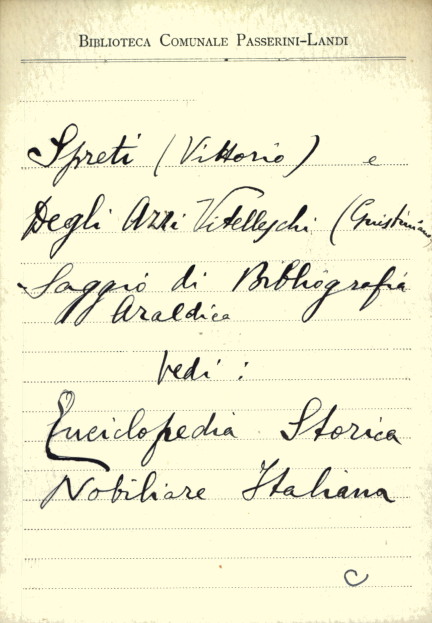 BIBLIOTECA COMUNALE PASSERINI-LANDI
Spreti (Vittorio) e
Degli Azzi Vitelleschi (Giustiniano)
Saggio di Bibliografia
Araldica
Vedi :
Enciclopedia Storica
Nobiliare Italiana
C